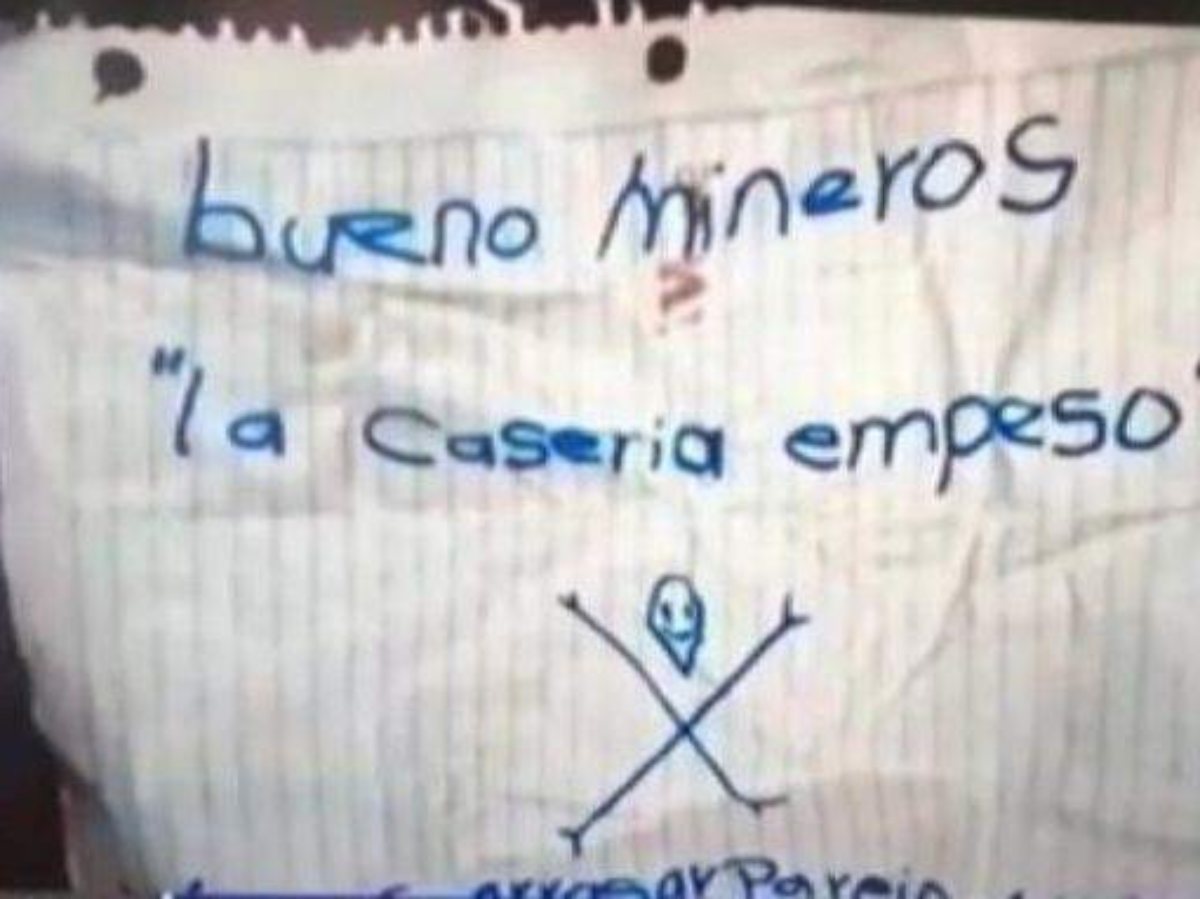 bueno mineros
"la caseria empeso"
arrasar Parejo